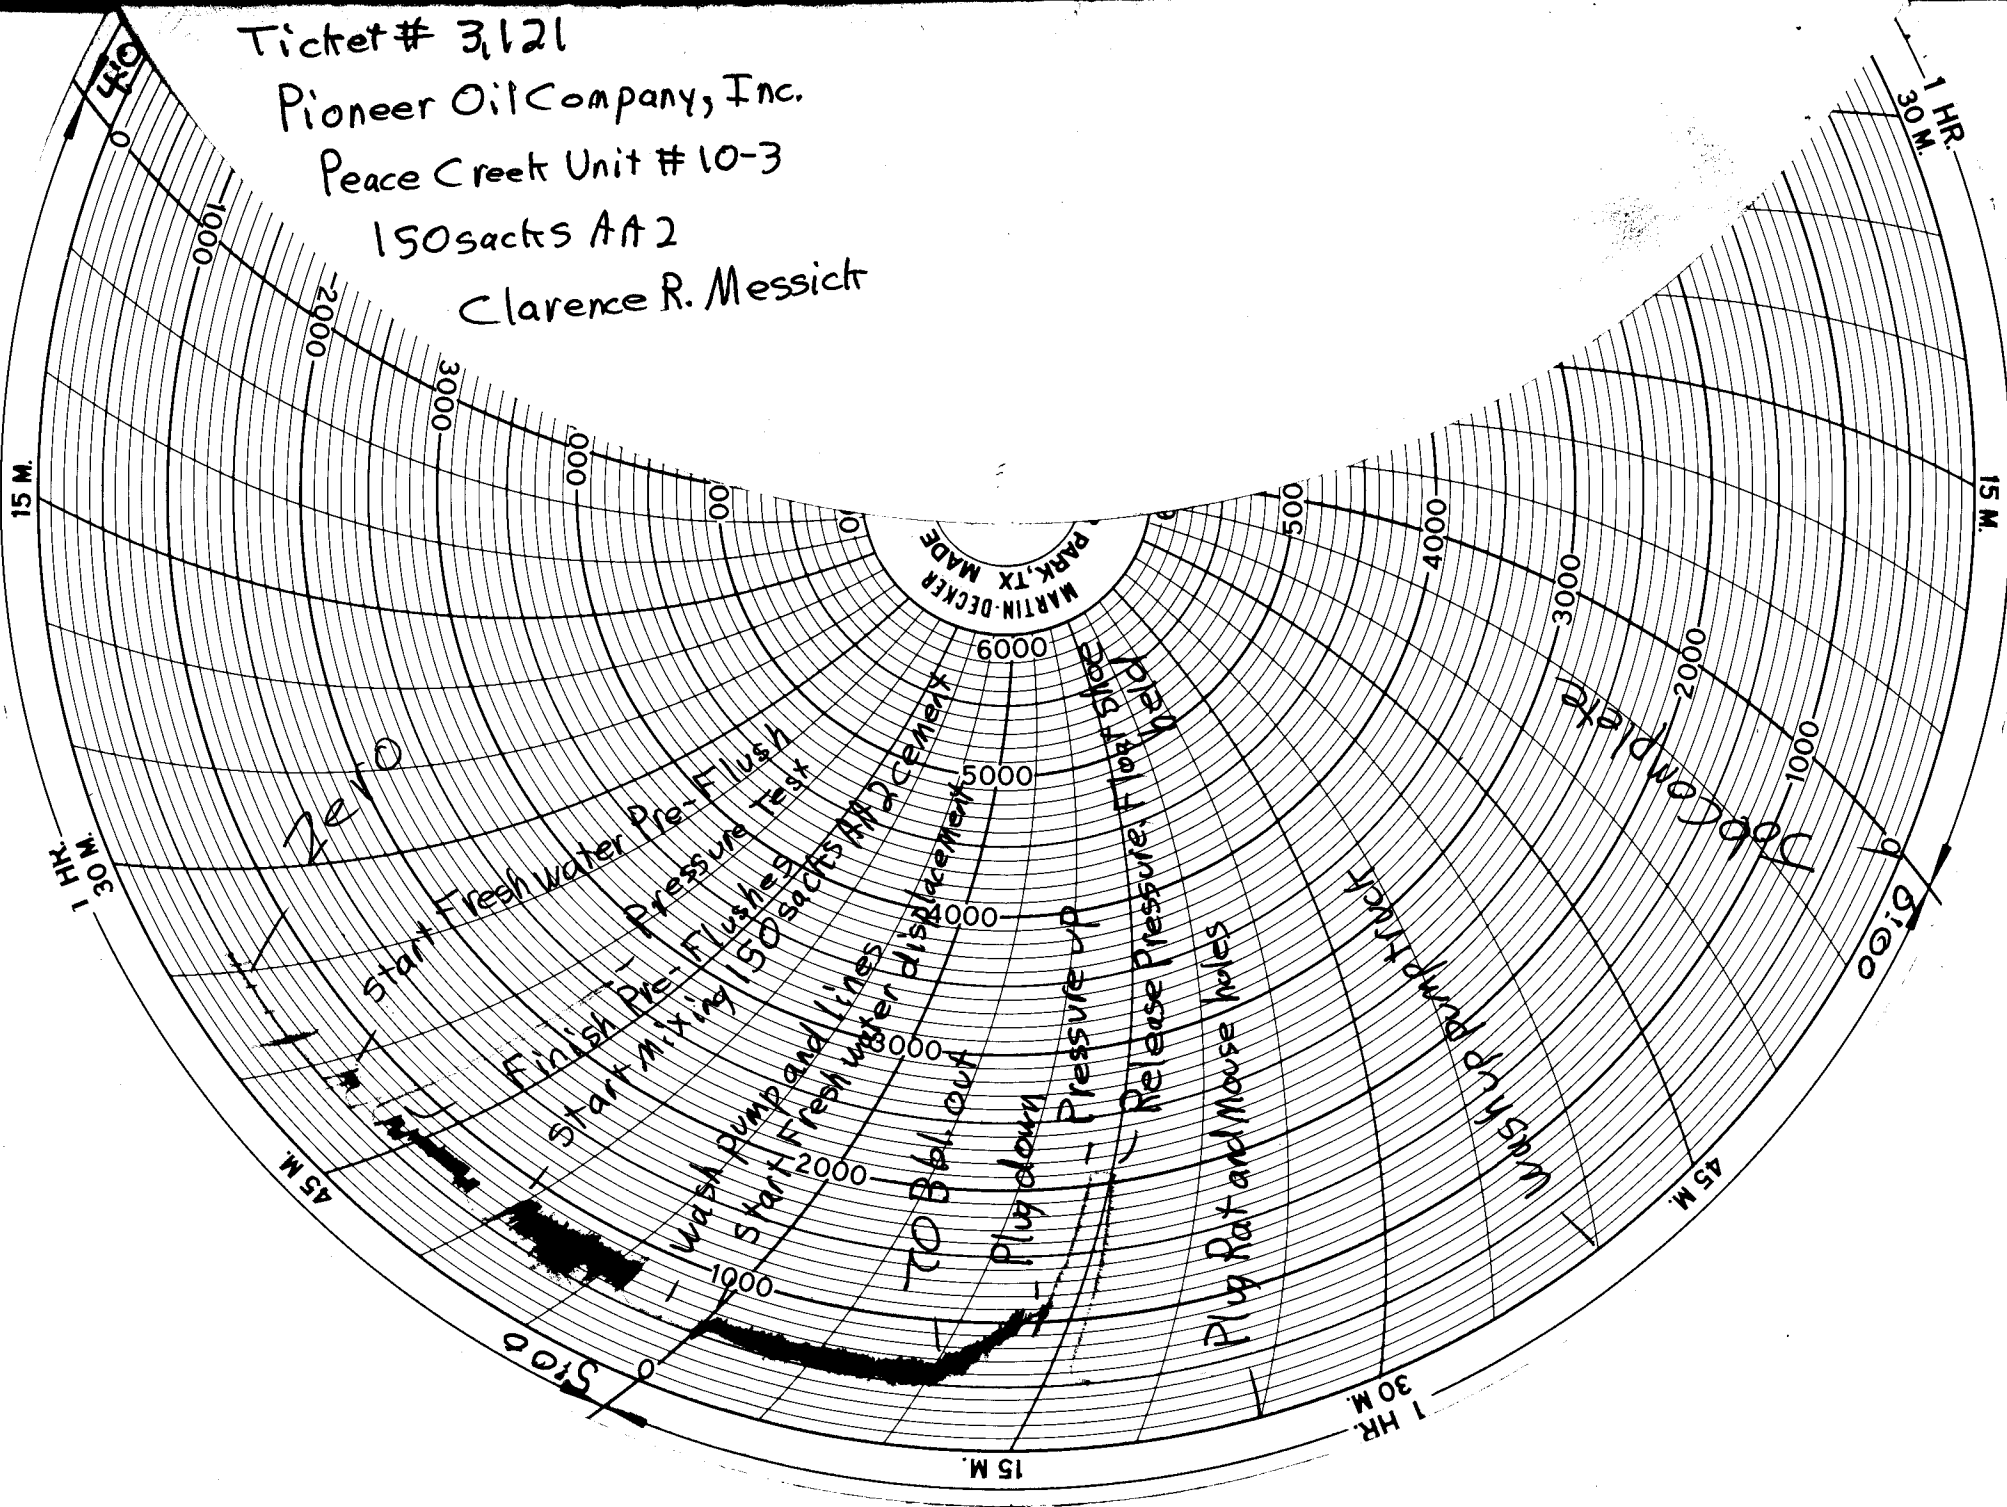 Ticket# 3,121
Pioneer Oil Company, Inc.
Peace Creek Unit # 10-3
150 sacks AA2
Clarence R. Messick
4:0
0
1000
2000
3000
000
00
0
15 M.
1 HR.
30 M.
45 M.
5:00
0
15 M.
1 HR.
30 M.
45 M.
6:00
0
15 M.
1 HR.
30 M.
PARK, TX MADE
MARTIN-DECKER
6000
5000
4000
3000
2000
1000
500
4000
3000
2000
1000
Zero
Start Fresh water Pre-Flush
Pressure Test
Finish Pre-Flushes
Start Mixing 150 sacks AA2 cement
Wash pump and lines
Start Fresh water displacement
70 Bbl. out
Plug down
Pressure up
Release Pressure. Float Shoe
held
Plug Rat and Mouse holes
Wash up pump truck
Job Complete